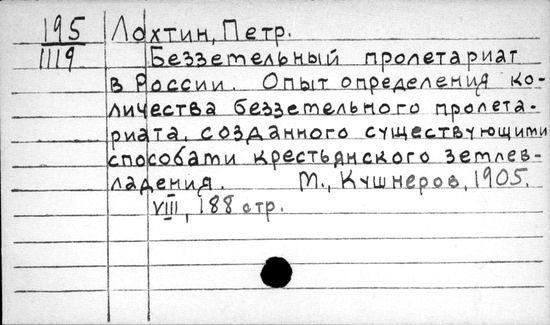 195 Лохтин, Петр.
1119 Безземельный пролетариат
в России. Опыт определения ко-
личества безземельного пролета-
риата, созданного существующими
способами крестьянского землев-
ладения. М., Кушнеров, 1905.
VIII, 188 стр.